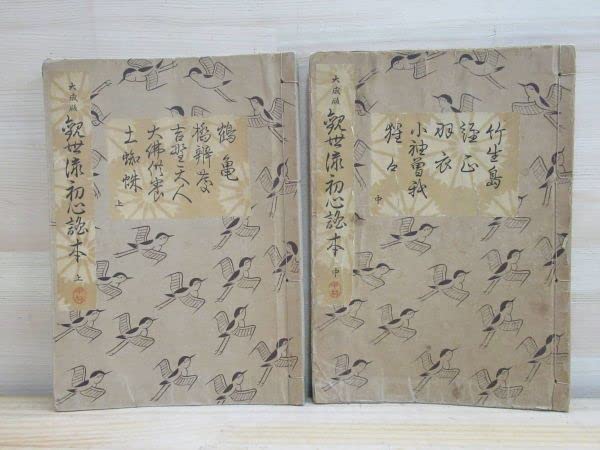 大成版
觀世流初心謠本 上
鶴亀
橋辨慶
吉野天人
大佛供養
土蜘蛛
上
大成版
觀世流初心謠本 中
竹生島
經正
羽衣
小袖曽我
猩々
中